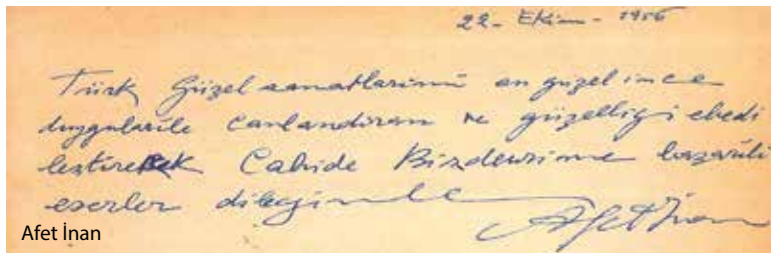 22 - Ekim - 1956
Türk Güzel sanatlarını en güzel ince
duygularile canlandıran ve güzelliği ebedi
leştirecek Cahide Bizdevrime başarılı
eserler dileğimle
Afet İnan
Afet İnan